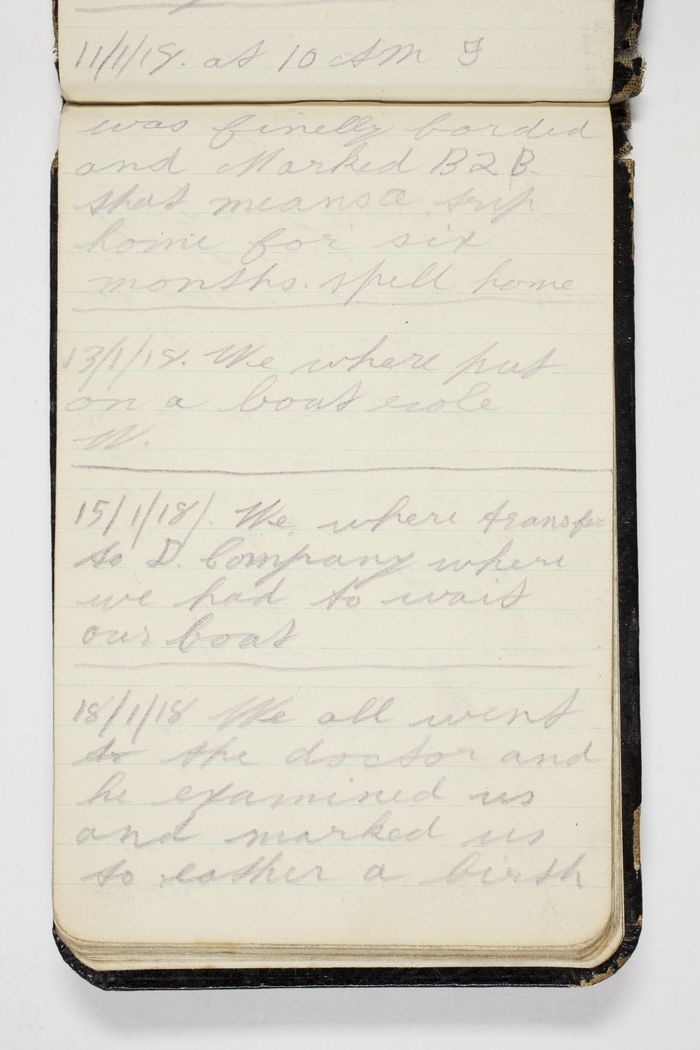 11/1/18. at 10 AM I
was finelly borded
and Marked B2B.
that means a trip
home for six
months. spell home
13/1/18. We where put
on a boat role
W.
15/1/18). We where transfer
to D. Company where
we had to wait
our boat
18/1/18 We all went
to the doctor and
he examined us
and marked us
to eather a birth